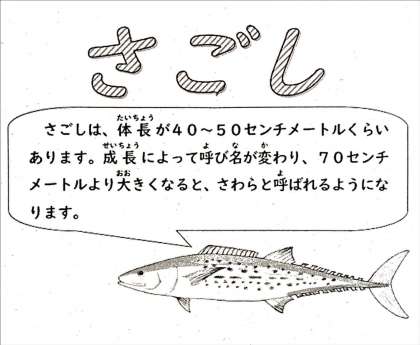 さごし
さごしは、体長が40～50センチメートルくらい
あります。成長によって呼び名が変わり、70センチ
メートルより大きくなると、さわらと呼ばれるようにな
ります。